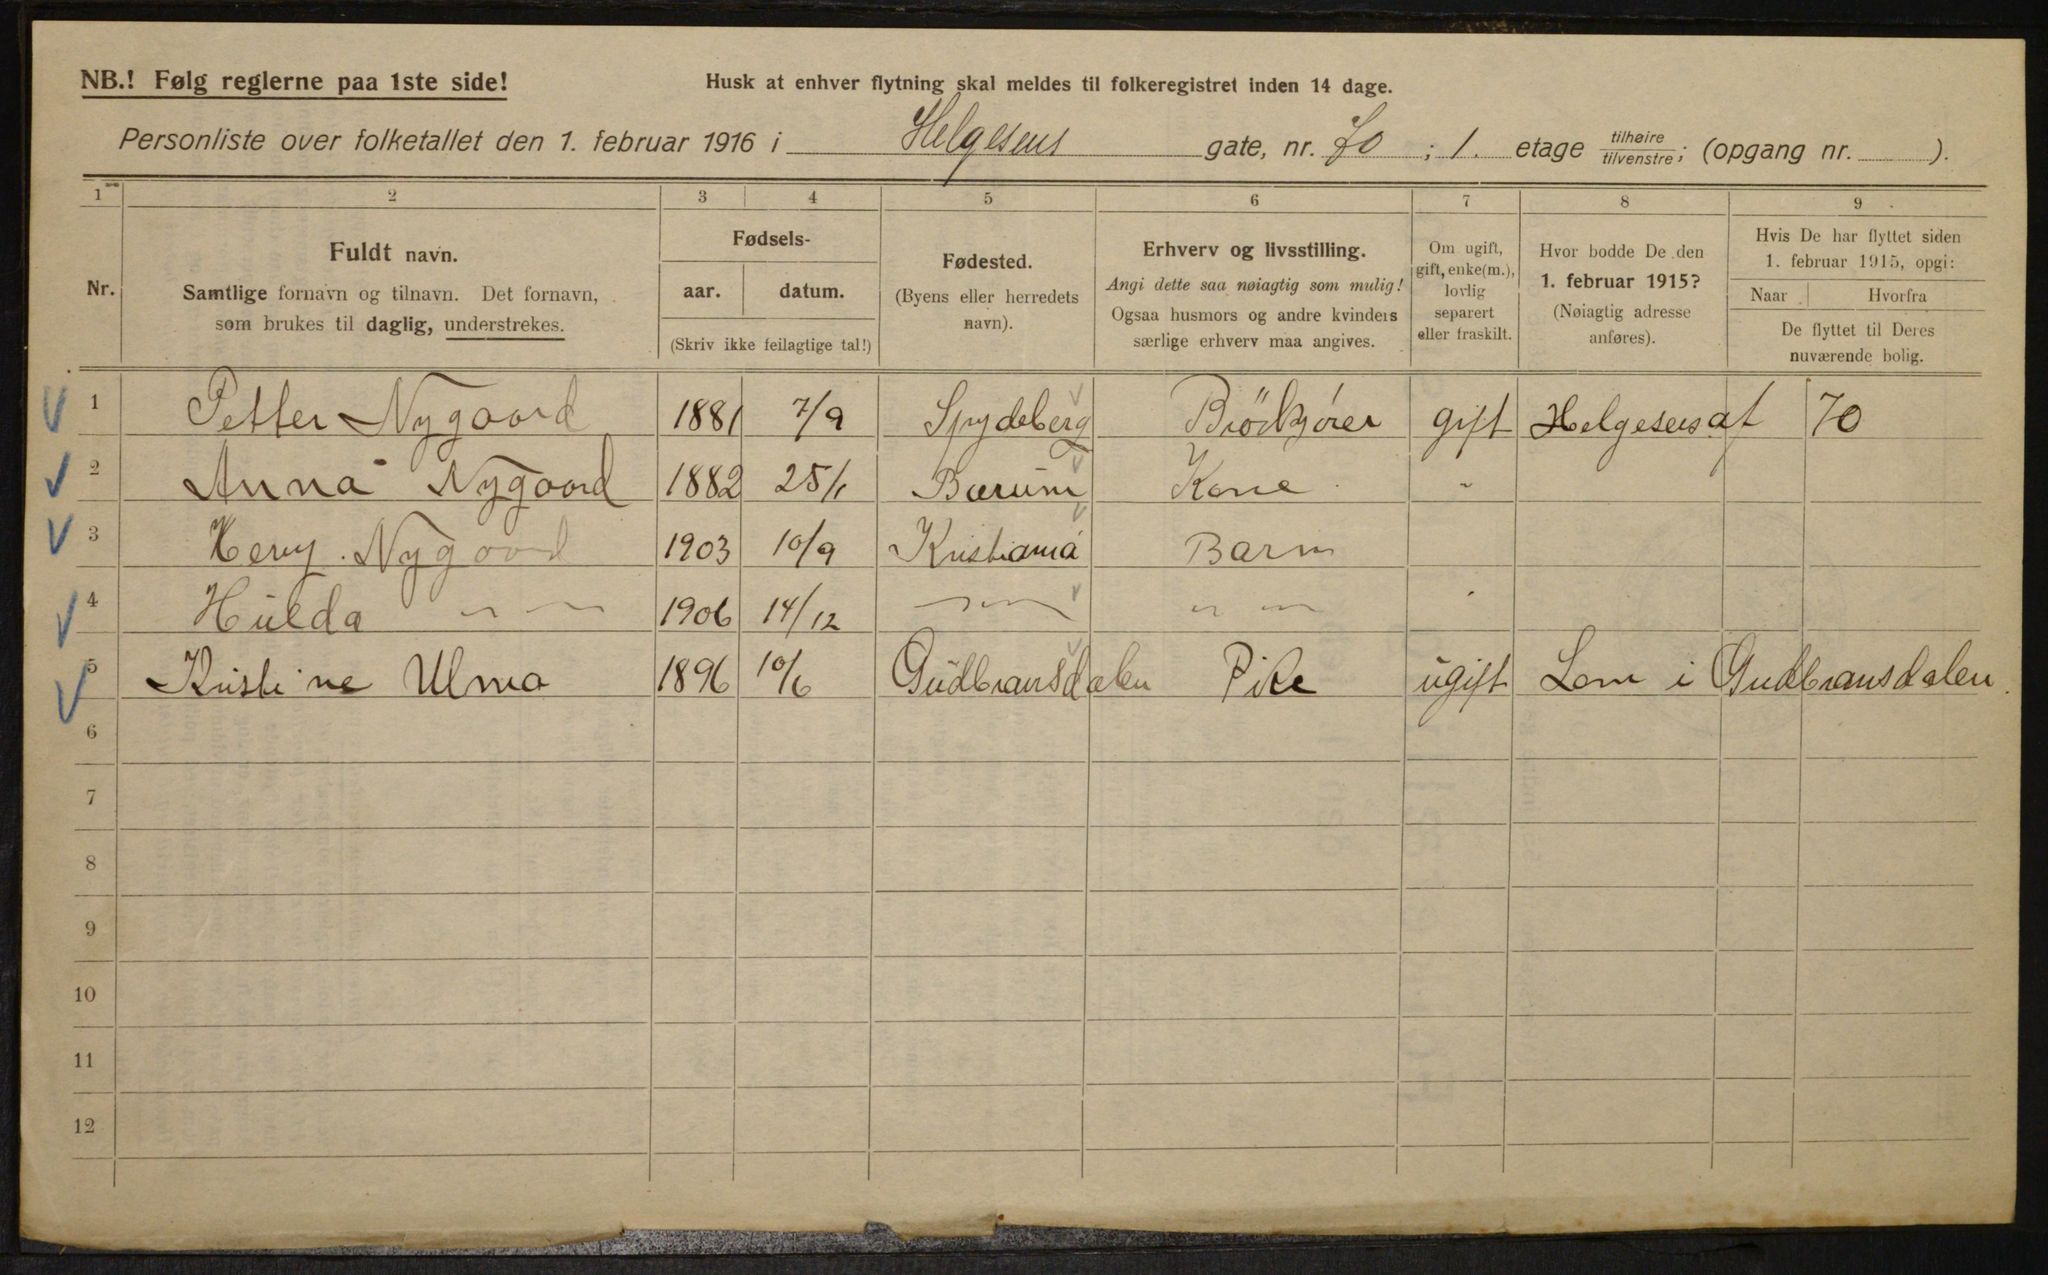 NB.! Følg reglerne paa 1ste side!
Husk at enhver flytning skal meldes til folkeregistret inden 14 dage.
Personliste over folketallet den 1. februar 1916 i Helgesens gate, nr. 70 ; 1. etage tilhøire/tilvenstre; (opgang nr. ).
1 2 3 4 5 6 7 8 9
Nr.
Fuldt navn.
Samtlige fornavn og tilnavn. Det fornavn,
som brukes til daglig, understrekes.
Fødsels-
aar. datum.
(Skriv ikke feilagtige tal!)
Fødested.
(Byens eller herredets
navn).
Erhverv og livsstilling.
Angi dette saa nøiagtig som mulig!
Ogsaa husmors og andre kvinders
særlige erhverv maa angives.
Om ugift,
gift, enke(m.),
lovlig
separert
eller fraskilt.
Hvor bodde De den
1. februar 1915?
(Nøiagtig adresse
anføres).
Hvis De har flyttet siden
1. februar 1915, opgi:
Naar Hvorfra
De flyttet til Deres
nuværende bolig.
1 Petter Nygaard 1881 7/9 Spydeberg Brödkjörer gift Helgesens gt 70
2 Anna Nygaard 1882 25/1 Bærum Kone "
3 Henry Nygaard 1903 10/9 Kristiania Barn
4 Hulda " " 1906 14/12 " " "
5 Kristine Ulmo 1896 10/6 Gudbransdalen Pike ugift Lom i Gudbransdalen.
6
7
8
9
10
11
12